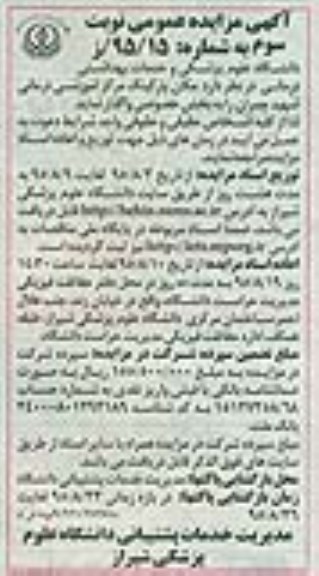 آگهی مزایده عمومی نوبت
سوم به شماره: ۹۵/۱۵/ز
دانشگاه علوم پزشکی و خدمات بهداشتی
درمانی در نظر دارد مکان پارکینگ مرکز آموزشی درمانی
شهید چمران را به بخش خصوصی واگذار نماید.
لذا از کلیه اشخاص حقیقی و حقوقی واجد شرایط دعوت به
عمل می آید در زمان های ذیل جهت توزیع و اعاده اسناد
مزایده مراجعه نمایند.
توزیع اسناد مزایده: از تاریخ ۹۵/۸/۲ لغایت ۹۵/۸/۹ به
مدت هشت روز از طریق سایت دانشگاه علوم پزشکی
شیراز به آدرس قابل دریافت
می باشد. ضمنا اسناد مربوطه در پایگاه ملی مناقصات به
آدرس نیز ثبت گردیده است.
اعاده اسناد مزایده: از تاریخ ۹۵/۸/۱۰ لغایت ساعت ۱۴:۳۰
روز ۹۵/۸/۱۹ به مدت ده روز در محل دفتر حفاظت فیزیکی
مدیریت حراست دانشگاه واقع در خیابان زند، جنب هلال
احمر ساختمان مرکزی دانشگاه علوم پزشکی شیراز، طبقه
همکف اداره حفاظت فیزیکی مدیریت حراست دانشگاه
مبلغ تضمین سپرده شرکت در مزایده: سپرده شرکت
در مزایده به مبلغ ریال به صورت
ضمانتنامه بانکی یا فیش واریز نقدی به شماره حساب
به کد شناسه
بانک ملت
مبلغ سپرده شرکت در مزایده همراه با سایر اسناد از طریق
سایت های فوق الذکر قابل دریافت می باشد.
محل بازگشایی پاکتها: مدیریت خدمات پشتیبانی دانشگاه
زمان بازگشایی پاکتها: در بازه زمانی ۹۵/۸/۲۲ لغایت
۹۵/۸/۲۶
مدیریت خدمات پشتیبانی دانشگاه علوم
پزشکی شیراز